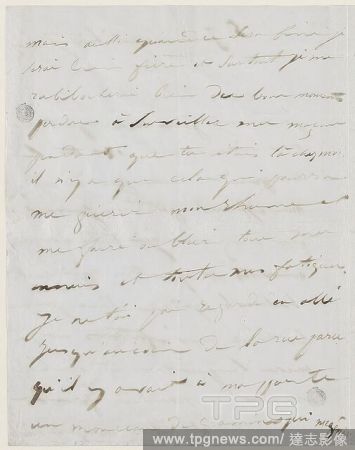 mais aussi quand ce sera fini je
serai bien fière et surtout je me
rabibocherai bien des bons moments
perdus à surveiller mes maçons
pendant que tu étais là chez moi
il n'y a que cela qui pourra
me guérir mon rhume et
me faire oublier tous mes
ennuis et toutes mes fatigues
je ne t'ai pas regardé en allé
jusqu'au coin de la rue parce
qu'il y avait à ma porte
un monceau de
TPG
www.tpgnews.com / 達志影像